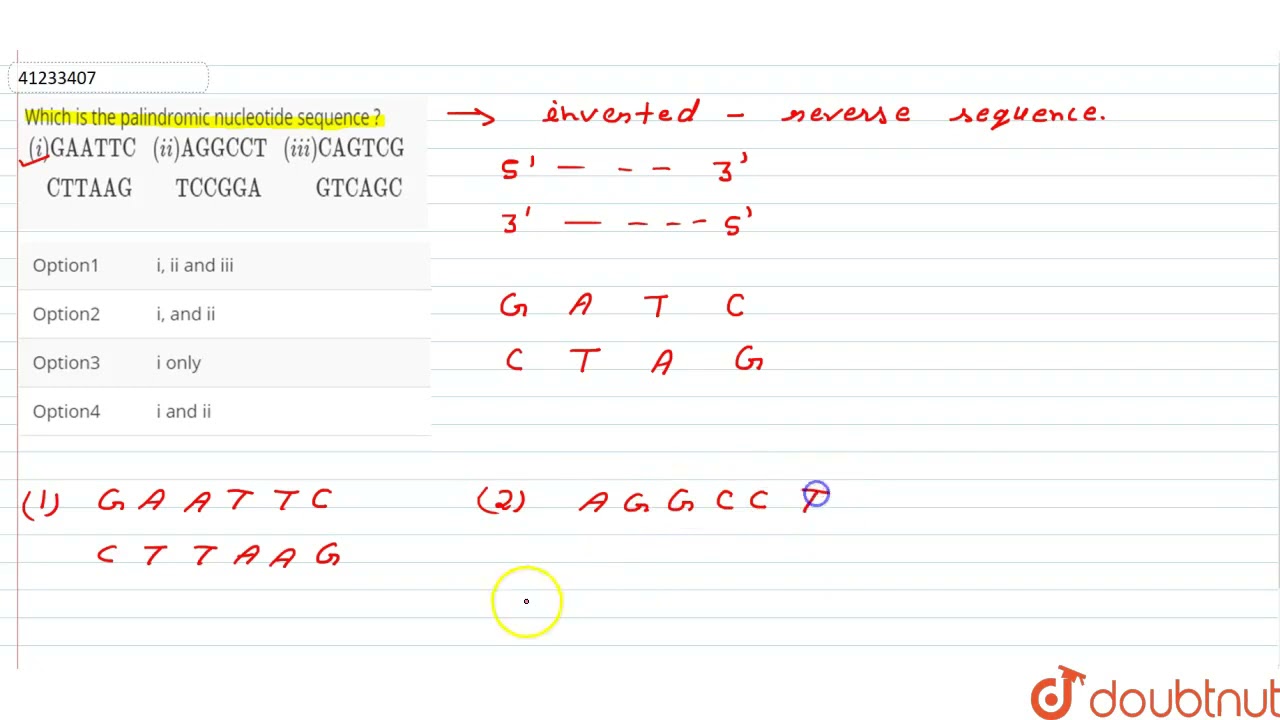 41233407
Which is the palindromic nucleotide sequence ?
(i)GAATTC (ii)AGGCCT (iii)CAGTCG
CTTAAG TCCGGA GTCAGC
Option1 i, ii and iii
Option2 i, and ii
Option3 i only
Option4 i and ii
→ invented - reverse sequence.
5' — - - 3'
3' — - - - 5'
G A T C
C T A G
(1) G A A T T C
C T T A A G
(2) A G G C C T
doubtnut